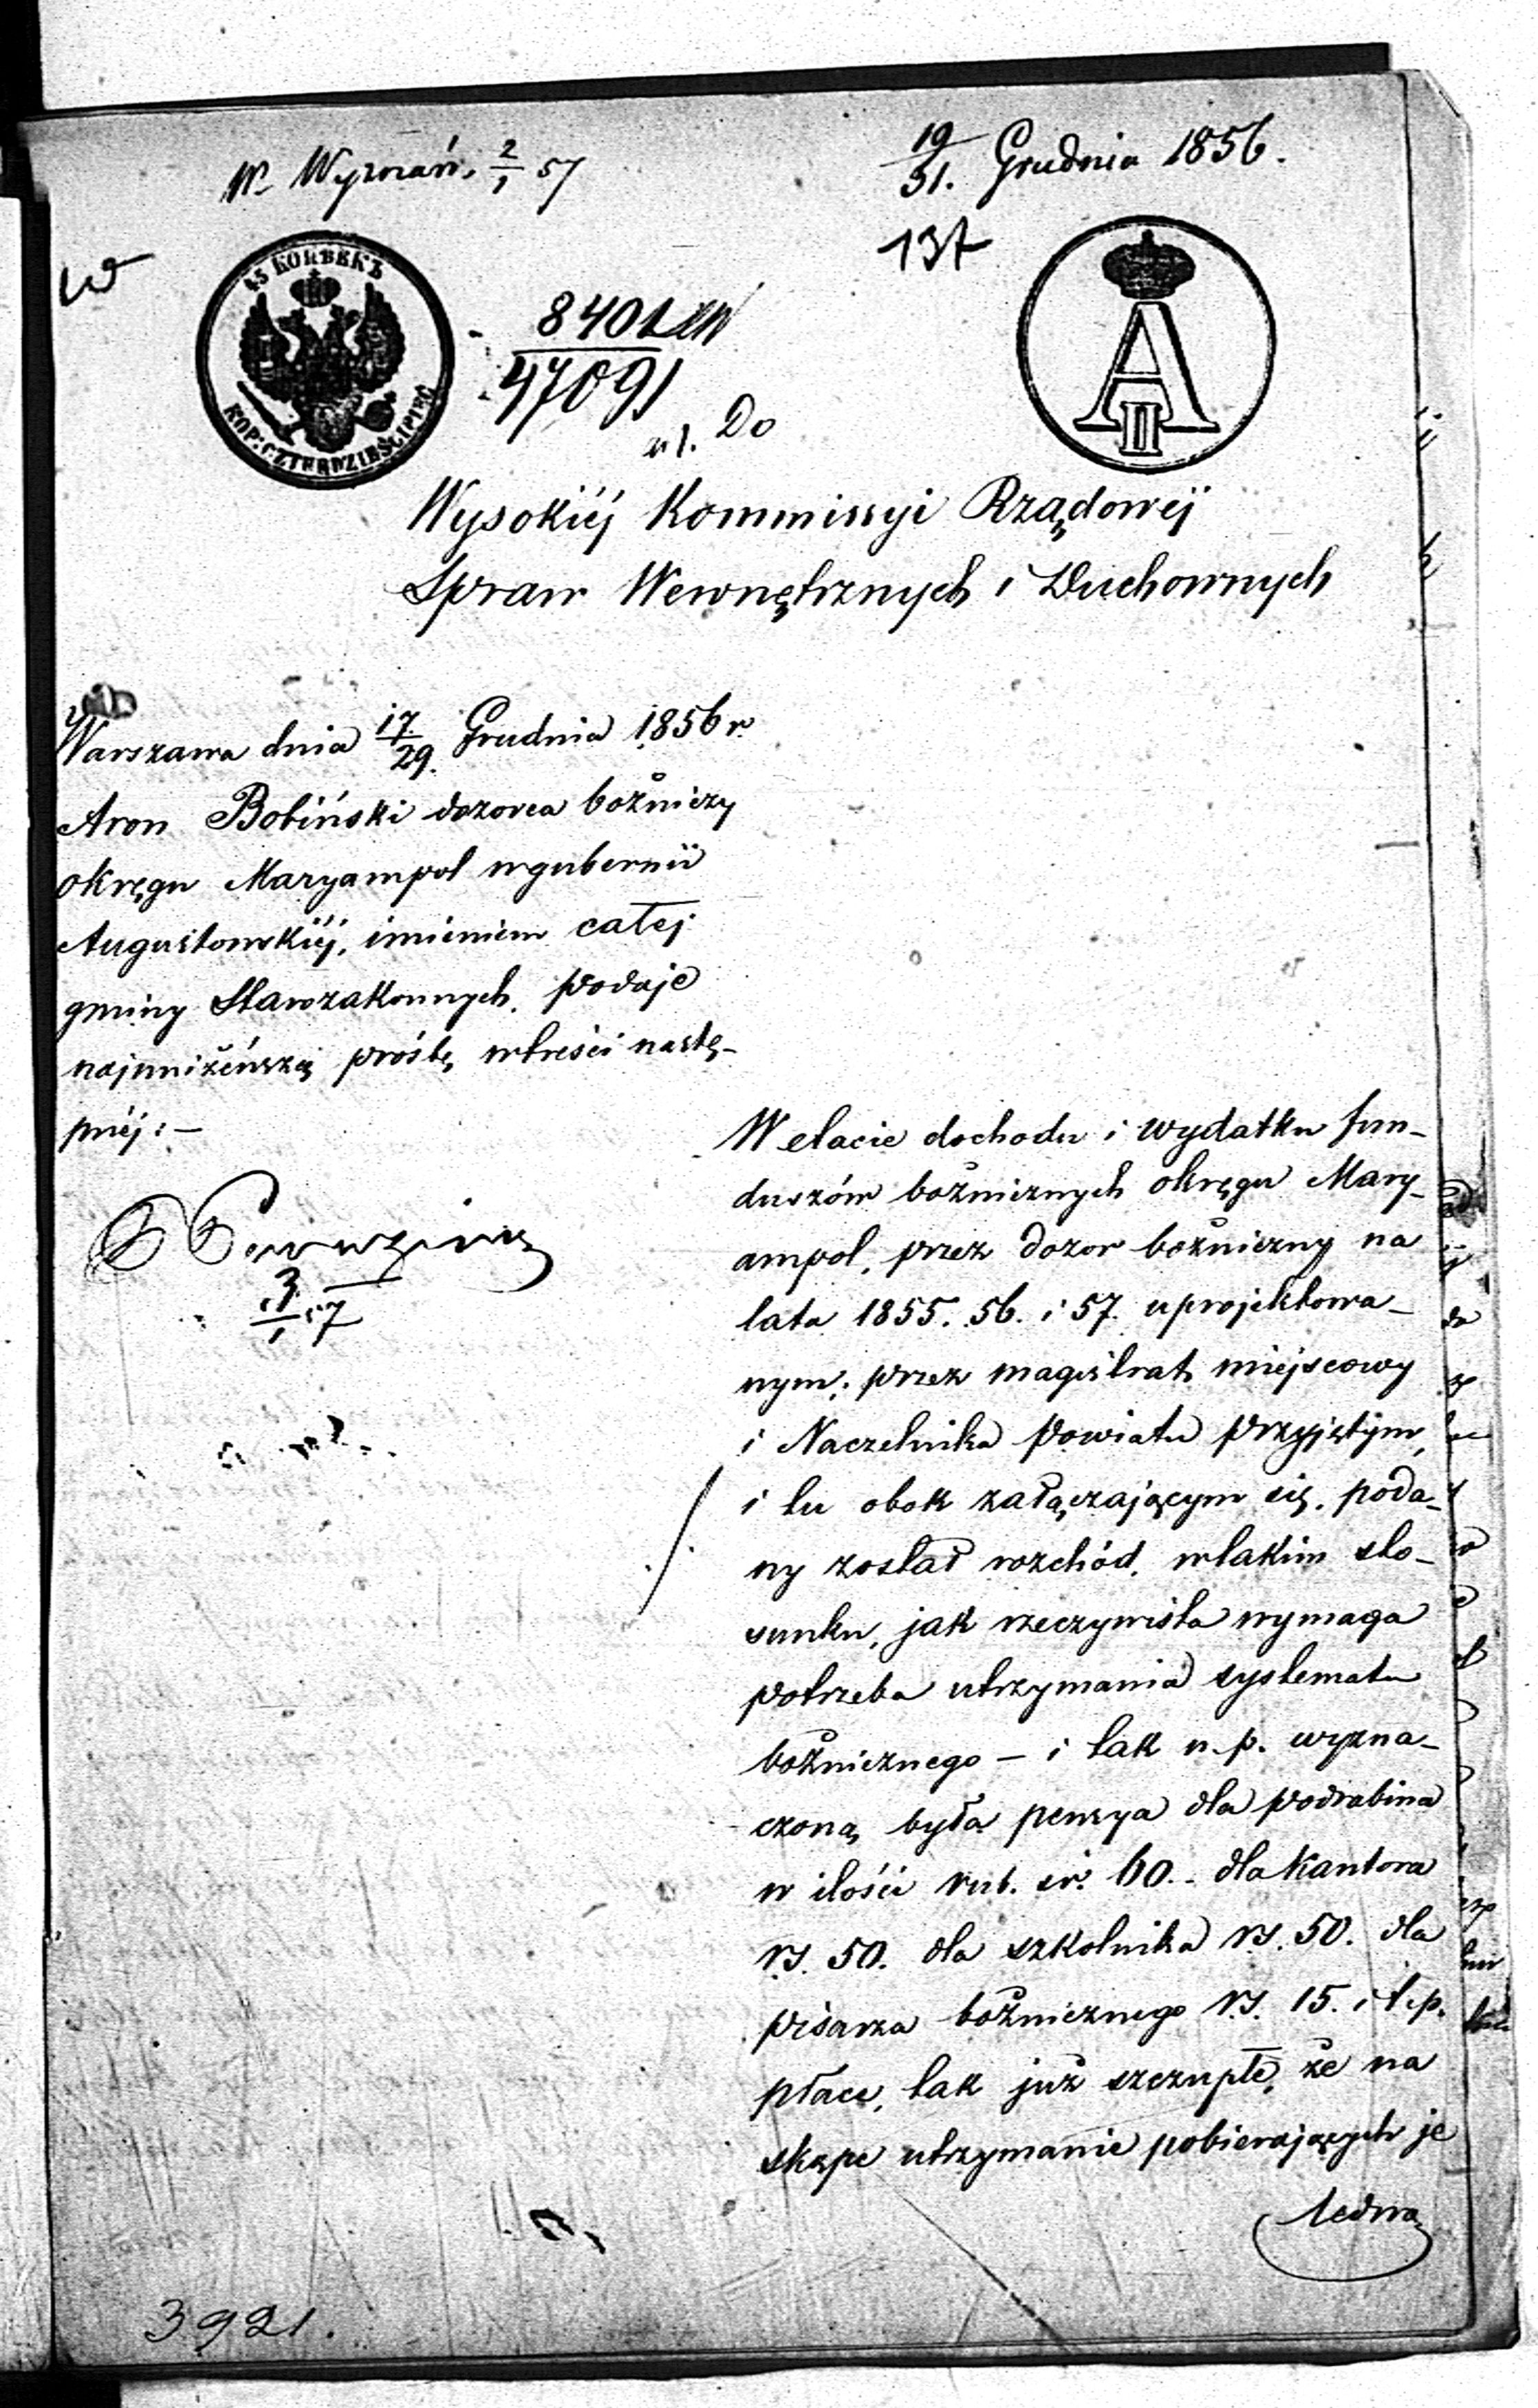 W. Wyznań. 2/1 57
19/31. Grudnia 1856.
137
45 KOPѢEKЪ
KOP: CZTERDZIEŚCI PIĘĆ
A II
8401
47091
Do
Wysokiéj Kommissyi Rządowéj
Spraw Wewnętrznych i Duchownych
Warszawa dnia 17/29. Grudnia 1856 r.
Aron Bobiński dozorca bóżniczy
okręgu Maryampol w gubernii
Augustowskiéj, imieniem całej
gminy Starozakonnych, podaje
najuniżeńszą prośbę w treści nastę-
pnéj: —
W etacie dochodu i wydatku fun-
duszów bóżnicznych okręgu Mary-
ampol, przez dozor bóżniczny na
lata 1855. 56. i 57. uprojektowa-
nym; przez magistrat miejscowy
i Naczelnika Powiatu przyjętym,
i tu obok załączającym się, poda-
ny został rozchód, w takim sto-
sunku, jak rzeczywista wymaga
potrzeba utrzymania systematu
bóżnicznego — i tak n. p. wyzna-
czoną była pensya dla podrabina
w ilości rub. sr. 60. - dla Kantora
rs. 50. dla szkolnika rs. 50. dla
pisarza bóżnicznego rs. 15. i t. p.
płace, tak już szczupłe, że na
skąpe utrzymanie pobierających je
ledwo
3/1 57
3921.